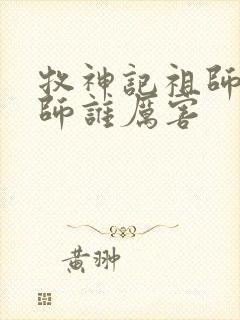 牧神記祖師
師誰厲害
黃翀